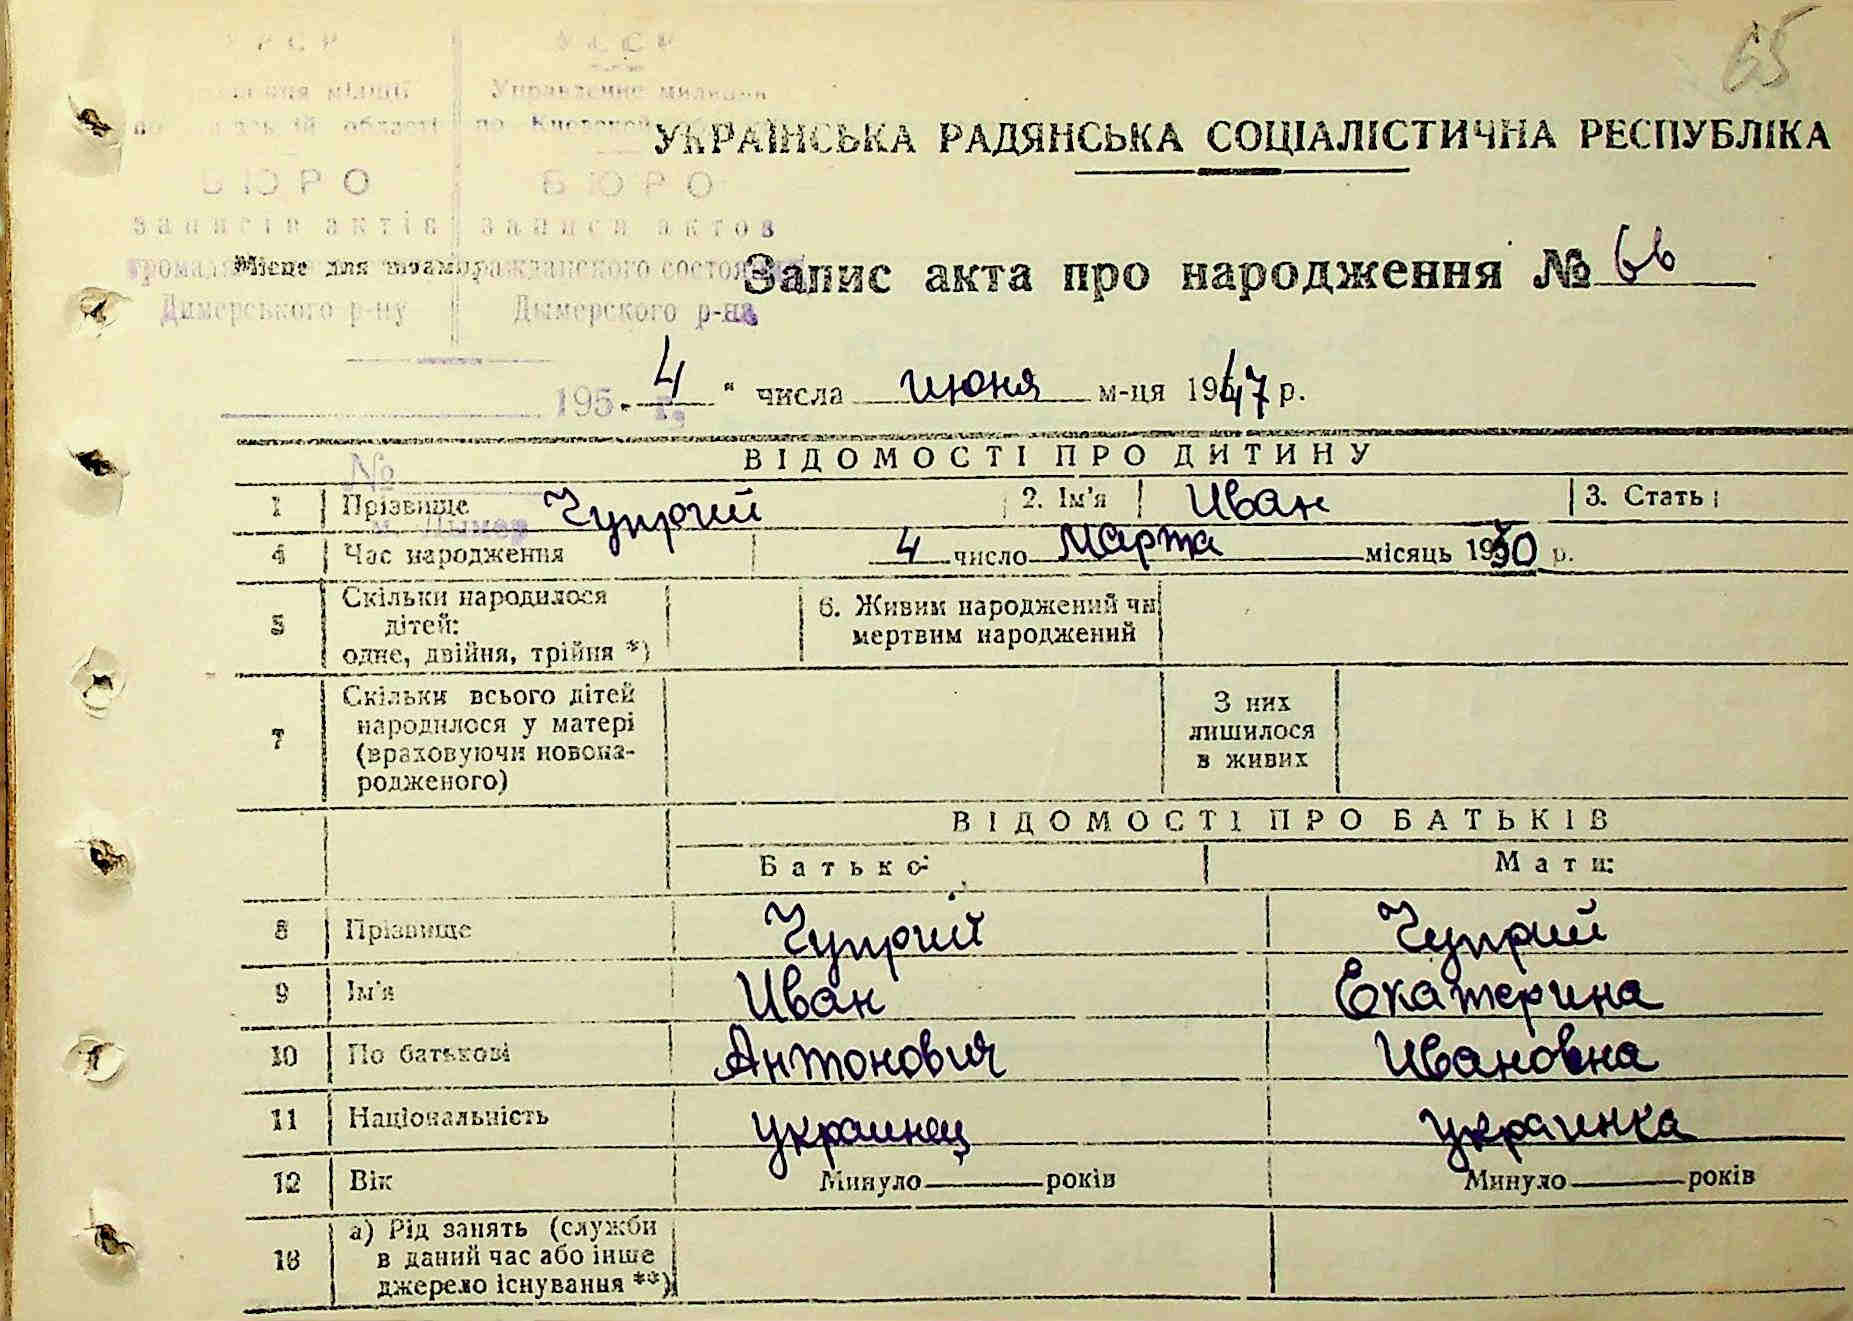 65
УРСР УССР
міліції Управление милиции
області по Киевской
УКРАЇНСЬКА РАДЯНСЬКА СОЦІАЛІСТИЧНА РЕСПУБЛІКА
БЮРО БЮРО
записів актів записи актов
Місце для штампу гражданского состояния
Запис акта про народження № 66
Димерського р-ну Дымерского р-на
195 г.
4 " числа июня м-ця 1947 р.
ВІДОМОСТІ ПРО ДИТИНУ
№
1 Прізвище Чуприй 2. Ім'я Иван 3. Стать
м. Дымер
4 Час народження 4 число Марта місяць 1950 р.
5 Скільки народилося дітей: одне, двійня, трійня *) 6. Живим народжений чи мертвим народжений
7 Скільки всього дітей народилося у матері (враховуючи новонародженого) З них лишилося в живих
ВІДОМОСТІ ПРО БАТЬКІВ
Батько: Мати:
8 Прізвище Чуприй Чуприй
9 Ім'я Иван Екатерина
10 По батькові Антонович Ивановна
11 Національність украинец украинка
12 Вік Минуло років Минуло років
13 а) Рід занять (служби в даний час або інше джерело існування **)